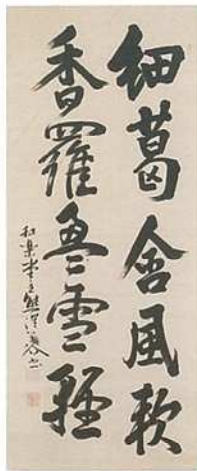 細葛含風軟
香羅疊雪輕